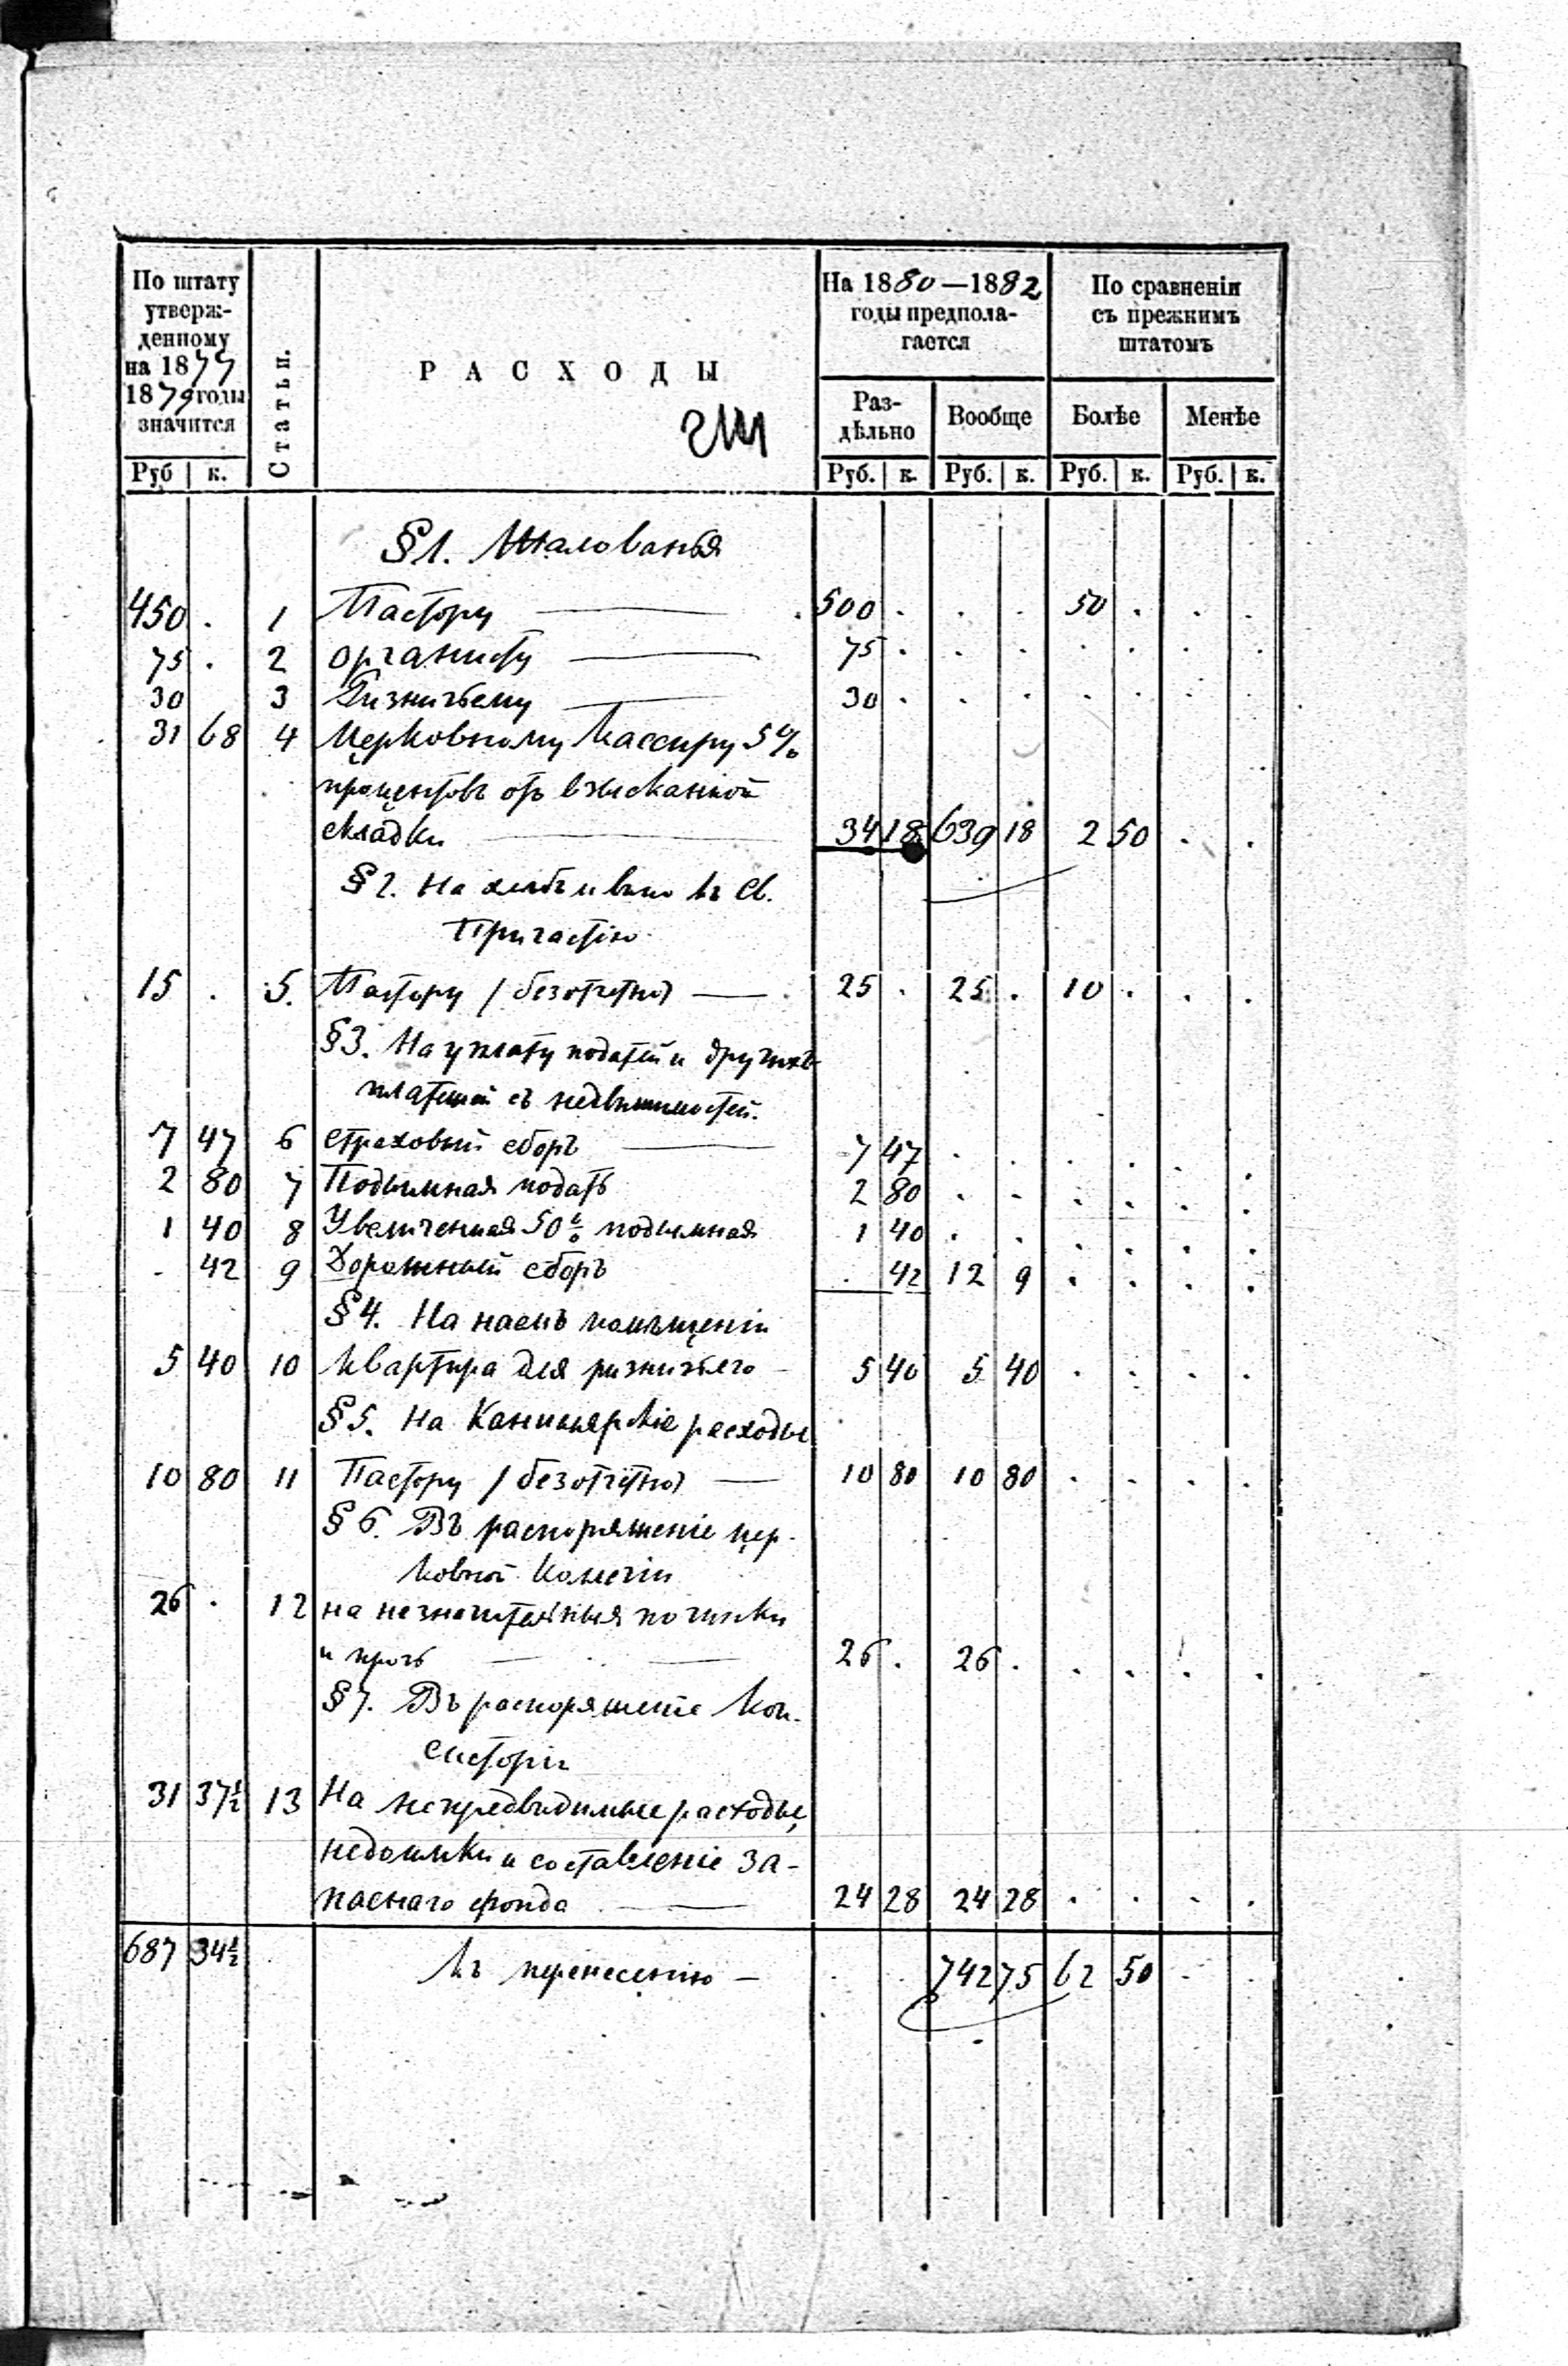 По штату утверж-денному на 1877 1879 годы значится
Статьи.
РАСХОДЫ
На 1880—1882 годы предпола-гается
По сравненiи съ прежнимъ штатомъ
Раз-дѣльно
Вообще
Болѣе
Менѣе
Руб. к. Руб. к. Руб. к. Руб. к. Руб. к.
§ 1. Жалованья
450 . 1 Пастору — 500 . . . 50 . . .
75 . 2 органисту — 75 . . . . . . .
30 3 Ризничьему — 30 . . . . . . .
31 68 4 Церковному Кассиру 5%
процентовъ отъ взысканной
складки — 34 18 639 18 2 50 . .
§ 2. На хлѣбъ и вино къ Св.
Причастiю
15 . 5. Пастору / безотчетно) — 25 . 25 . 10 . . .
§ 3. На уплату податей и другихъ
платежей съ недвижимостей.
7 47 6 Страховый сборъ — 7 47 . . . . . .
2 80 7 Подымная подать 2 80 . . . . . .
1 40 8 Увеличенная 50% подымная 1 40 . . . . . .
. 42 9 Дорожный сборъ . 42 12 9 . . . .
§ 4. На наемъ помѣщенiи
5 40 10 Квартира для ризничьяго — 5 40 5 40 . . . .
§ 5. На Канцелярскiе расходы
10 80 11 Пастору / безотчетно) — 10 80 10 80 . . . .
§ 6. Въ распоряженiе цер-
ковной Колегiи
26 . 12 на незначительныя починки
и прочь — 26 . 26 . . . . .
§ 7. Въ распоряженiе Кон-
систорiи
31 37½ 13 На непредвидимые расходы,
недоимки и составленiе за-
паснаго фонда — 24 28 24 28 . . . .
687 34½ Къ перенесенiю — . . 742 75 62 50 . .